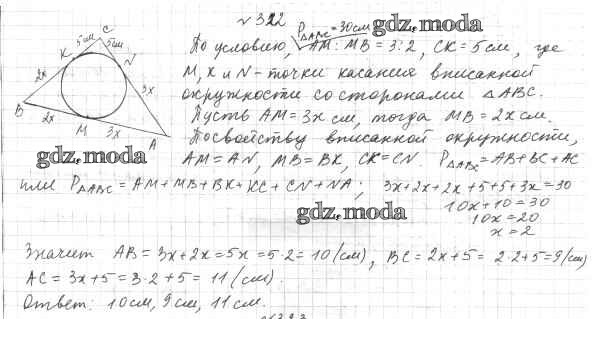 № 322 P△ABC = 30см
gdz.moda
По условию, AM : MB = 3 : 2, CK = 5 см, где
M, K и N - точки касания вписанной
окружности со сторонами △ABC.
Пусть AM = 3x см, тогда MB = 2x см.
По свойству вписанной окружности,
AM = AN, MB = BK, CK = CN. P△ABC = AB + BC + AC
C
5см
5см
K
N
2x
3x
B
2x
M
3x
A
gdz.moda
или P△ABC = AM + MB + BK + KC + CN + NA; 3x + 2x + 2x + 5 + 5 + 3x = 30
10x + 10 = 30
gdz.moda
10x = 20
x = 2
Значит AB = 3x + 2x = 5x = 5·2 = 10 (см), BC = 2x + 5 = 2·2 + 5 = 9 (см)
AC = 3x + 5 = 3·2 + 5 = 11 (см).
Ответ: 10 см, 9 см, 11 см.